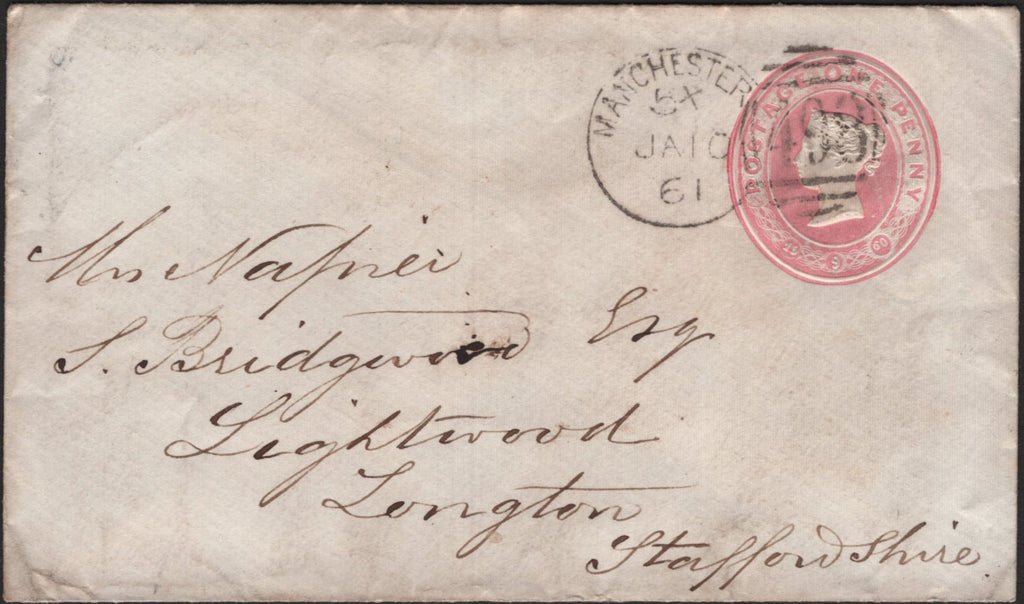 MANCHESTER
5X
JA10
61
POSTAGE ONE PENNY
19 9 60
Mrs Napier
S. Bridgwood Esq
Lightwood
Longton
Staffordshire